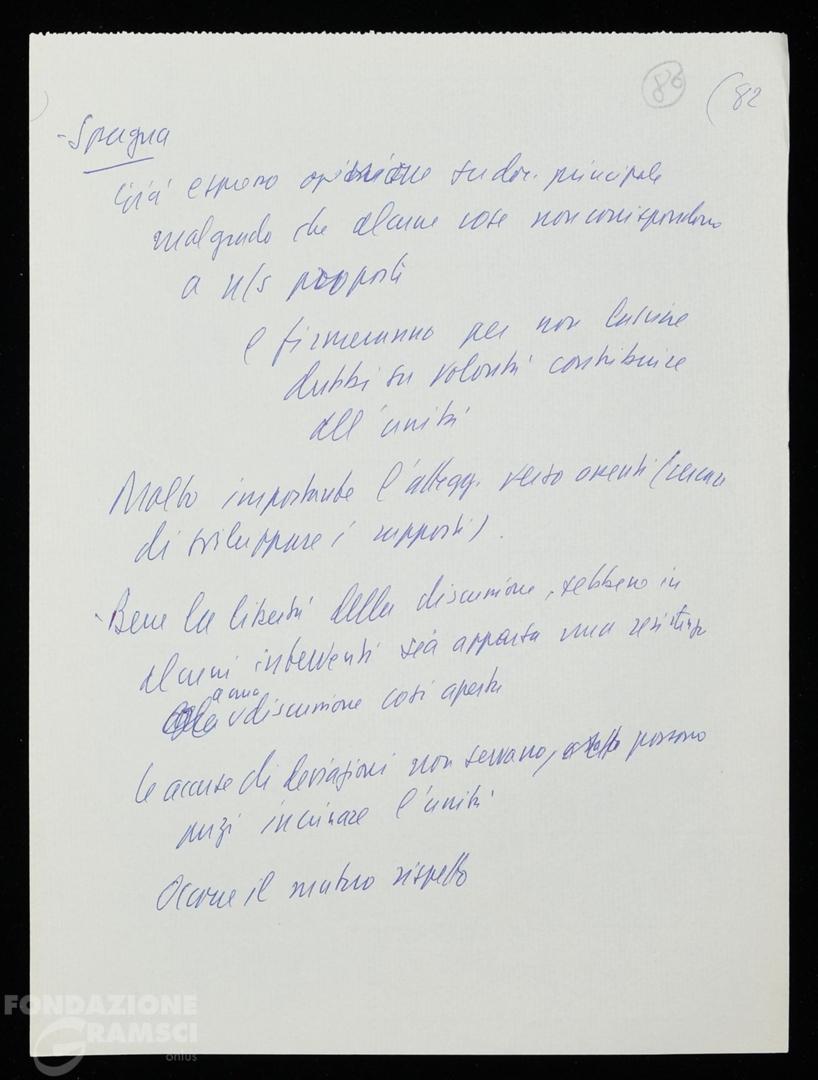 86 (82
- Spagna
Già espresso opinione su doc. principale
malgrado che alcune cose non corrispondono
a n/s proposti
e firmeranno per non lasciare
dubbi su volontà contribuire
all'unità
Molto importante l'attegg. verso assenti (cercare
di sviluppare i rapporti).
- Bene la libertà della discussione, sebbene in
alcuni interventi sia apparsa una resistenza
a una discussione così aperta
Le accuse di deviazioni non servano, possono
anzi incrinare l'unità
Occorre il mutuo rispetto
FONDAZIONE
GRAMSCI
onlus